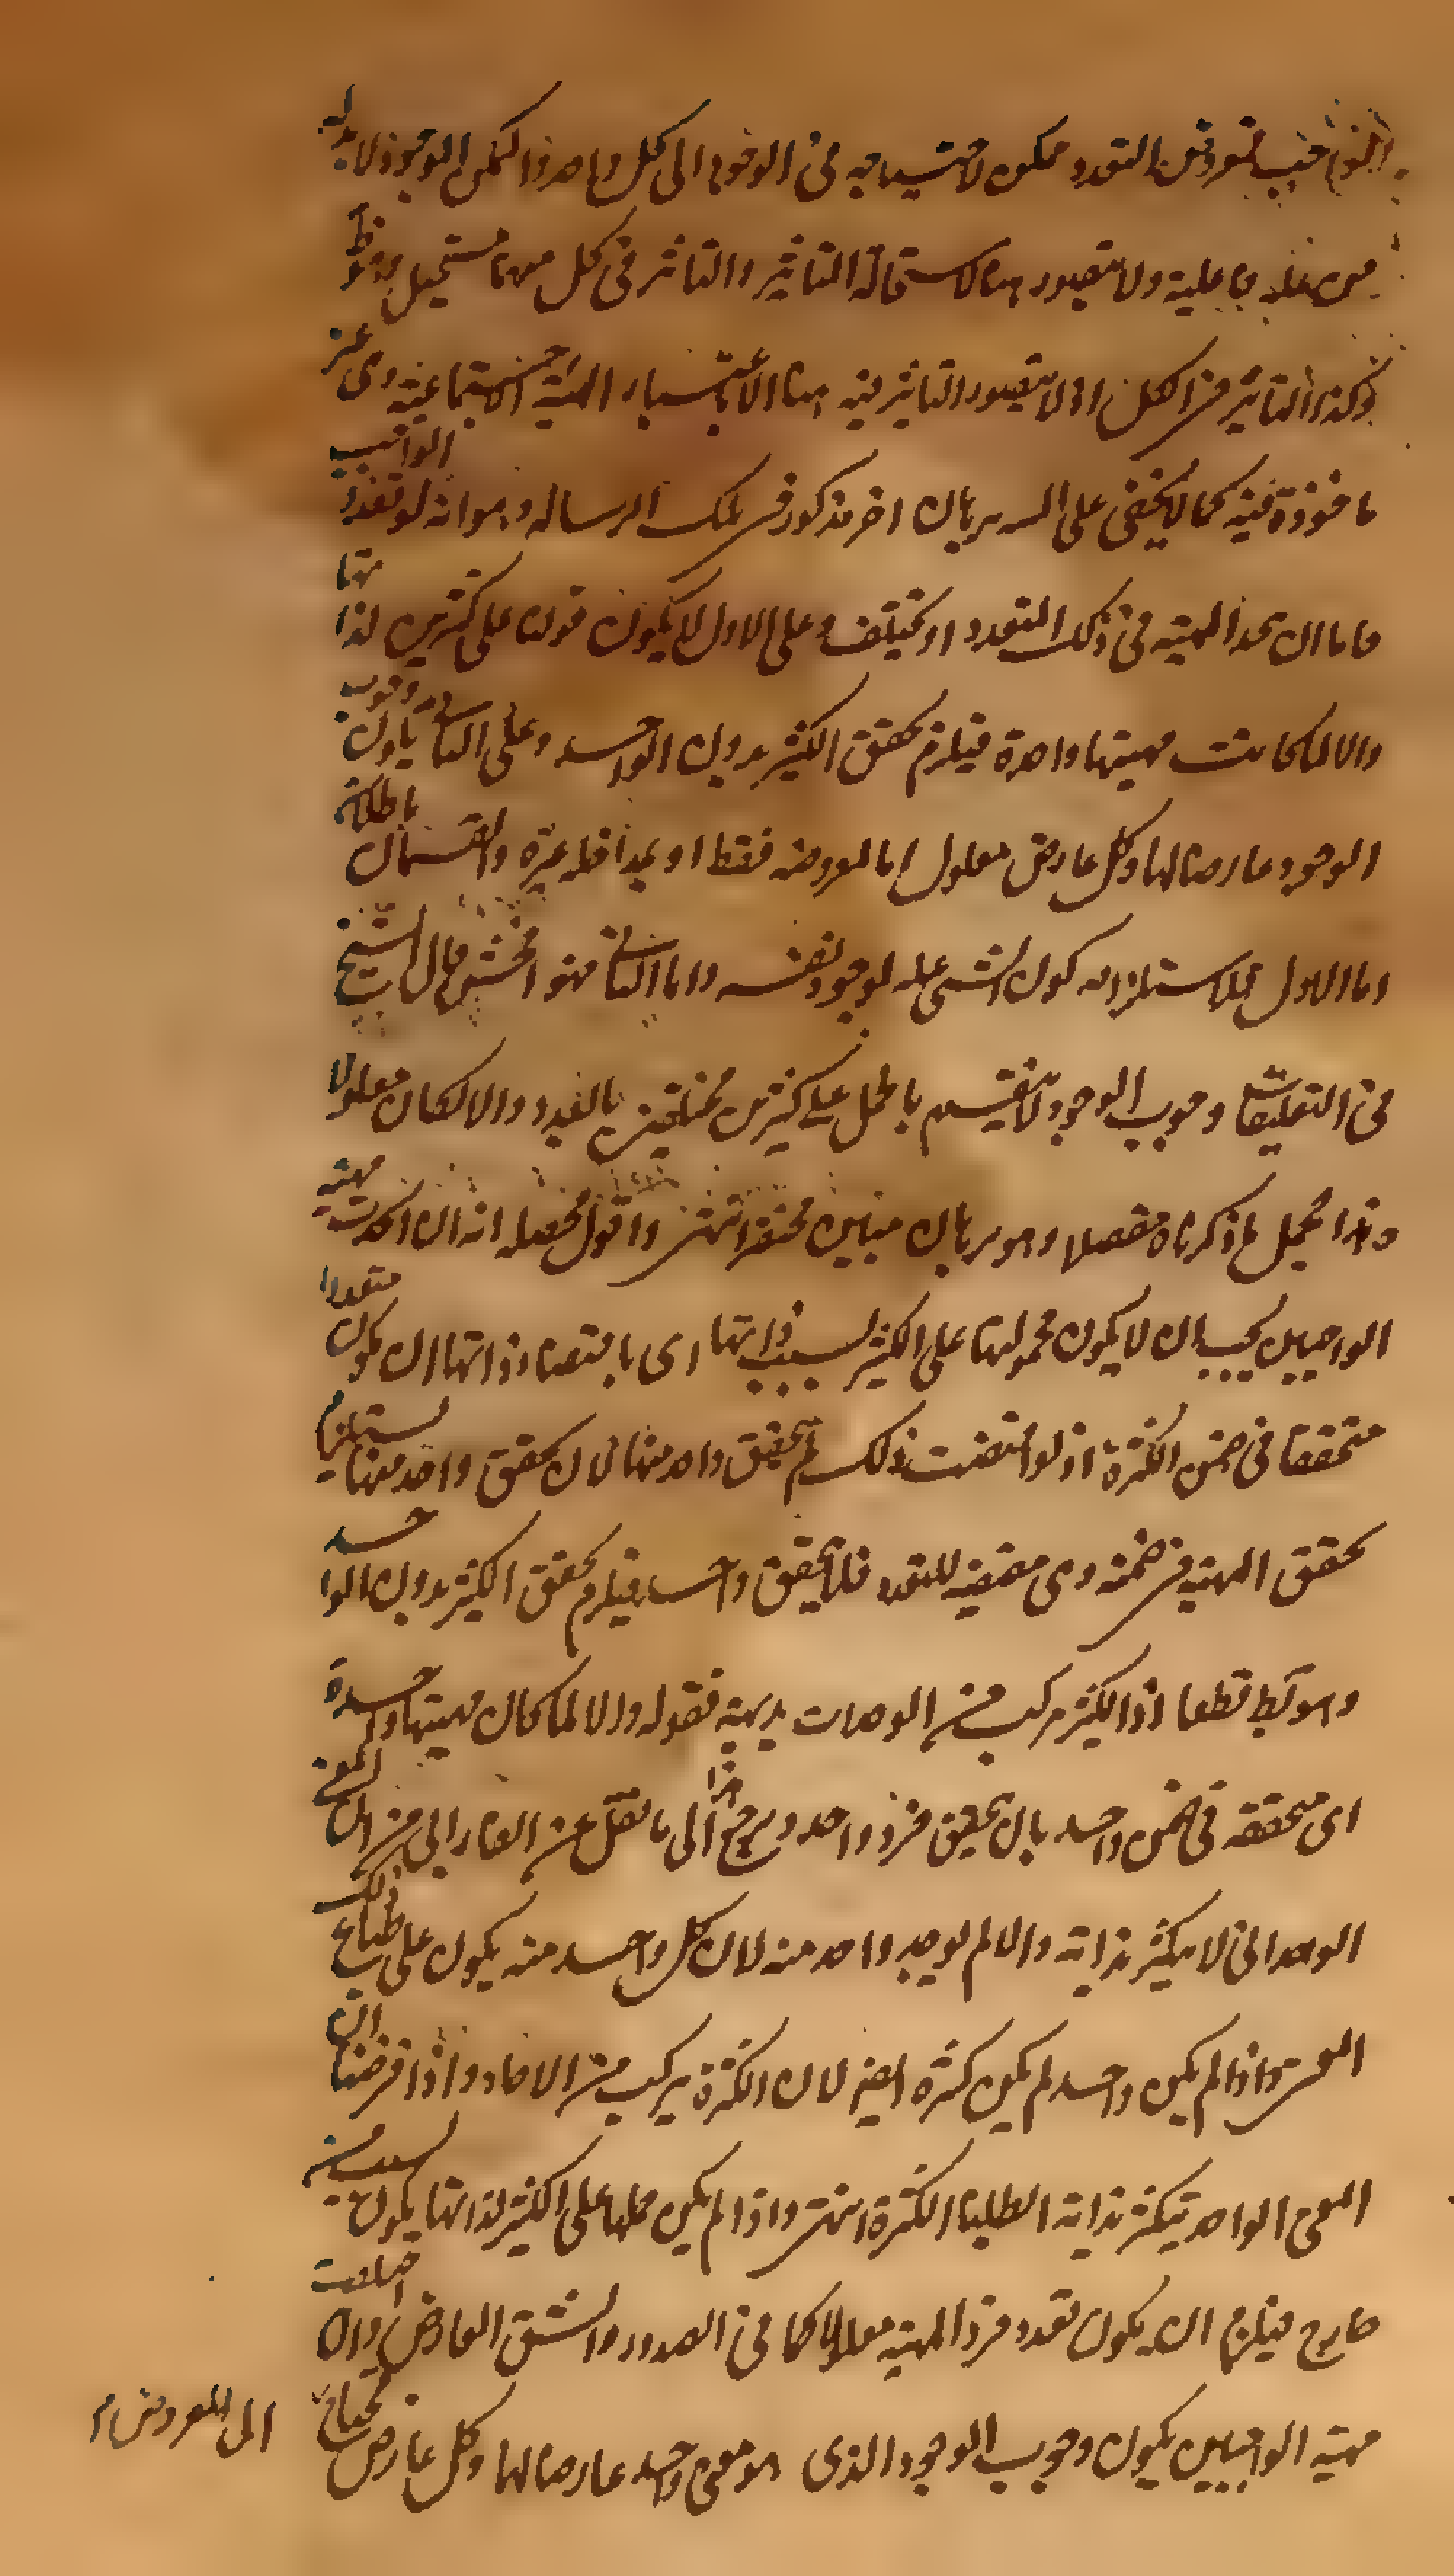 الواجب لمعروض التعدد ممكن لاحتياجه فى الوجود الى كل واحد والممكن الموجود لا بد له
من علة فاعلية ولا يتصور هنا لاستحالة التاثير والتاثر فى كل منهما مستحيل
وكذا التاثير فى الكل اذ لا يتصور التاثير فيه هنا الا باعتبار الهيئة الاجتماعية وهى غير
ماخوذة فيه كما لا يخفى على برهان اخر مذكور فى تلك الرساله وهو انه لو تعدد الواجب
فاما ان يتحد المهية فى ذلك المتعدد او يختلف وعلى الاول لا يكون قولها على كثيرين لذاتها
والا لما كانت مهيتها واحدة فيلزم تحقق الكثير بدون الواحد وعلى الثانى يكون وجوب
الوجود عارضا لها وكل عارض معلول اما لمعروضه فقط او بمداخلة غيره والقسمان باطلان
اما الاول فلاستلزامه كون الشى علة لوجود نفسه واما الثانى فهو افحش قال الشيخ
فى التعليقات وجوب الوجود لا ينقسم بالحمل على كثيرين مختلفين بالعدد والا لكان معلولا
وهذا مجمل ما ذكرناه مفصلا وهو برهان متين مختصر انتهى واقول محصله انه ان اتحدت مهية
الواجبين يجب ان لا يكون محموليتها على الكثير بسبب ذاتها اى باقتضاء ذاتها ان يكون متعددا
متحققا فى ضمن الكثرة اذ لو اقتضت ذلك لم يتحقق واحد منها لان تحقق واحد منها يستلزم
تحقق المهية فى ضمنه وهى مقتضية للتعدد فلا يتحقق واحد فيلزم تحقق الكثير بدون الواحد
وهو بط قطعا اذ الكثير مركب من الوحدات بديهة فقوله والا لما كان مهيتها واحدة
اى متحققه فى ضمن واحد بان يتحقق فرد واحد ويرجع هذا الى ما نقل عن الفارابى من ان المعنى
الوحدانى لا يتكثر بذاته والا لم يوجد واحد منه لان كل واحد منه يكون على طباع ذلك
المعنى واذا لم يكن واحد لم يكن كثرة ايضا لان الكثرة يتركب من الاحاد واذا فرضنا ان
المعنى الواحد يتكثر بذاته ابطلنا الكثرة انتهى واذا لم يكن حملها على الكثير لذاتها يكون لسبب من
خارج فيلزم ان يكون تعدد فرد المهية معلولا كما فى الصدور والشق العارض وان اختلفت
مهية الواجبين يكون وجوب الوجود الذى هو معنى واحد عارضا لها وكل عارض يحتاج
الى المعروض